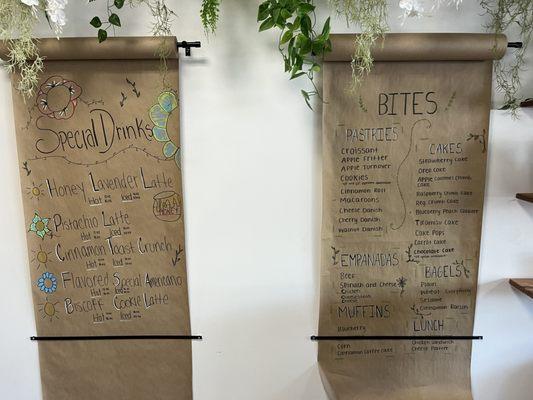 Special Drinks
Honey Lavender Latte
Hot Iced
Pistachio Latte
Hot Iced
Cinnamon Toast Crunch
Hot Iced
Flavored Special Americano
Hot Iced
Biscoff Cookie Latte
Hot Iced
HONEY
BITES
PASTRIES
Croissant
Apple Fritter
Apple Turnover
Cookies
Cinnamon Roll
Macaroons
Cheese Danish
Cherry Danish
Walnut Danish
EMPANADAS
Beef
Spinach and Cheese
Chicken
MUFFINS
Blueberry
Corn
Cinnamon Coffee Cake
CAKES
Strawberry Cake
Oreo Cake
Apple Caramel Crumb
Cake
Raspberry Crumb Cake
Reg. Crumb Cake
Tiramisu Cake
Cake Pops
Carrot Cake
Chocolate Cake
BAGELS
Plain
Everything
Sesame
Cinnamon Raisin
LUNCH
Chicken Sandwich